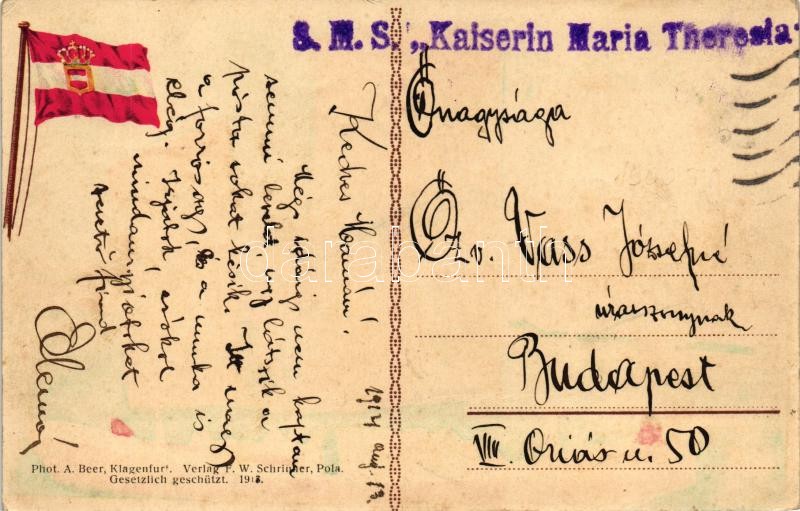 S. M. S. „Kaiserin Maria Theresia"
Kedves Mamám!
Még mindig nem kaptam
semmi levelet, úgy látszik a
posta sokat késik. Itt nagy
a forróság, és a munka is
elég.
mindannyiotokat
szerető fiad
1914 Aug. 13.
Őnagysága
Özv. Vass Józsefné
úrasszonynak
Budapest
VIII. Óriás u. 50
Phot. A. Beer, Klagenfurt. Verlag F. W. Schrinner, Pola.
Gesetzlich geschützt. 1913.
darabanth